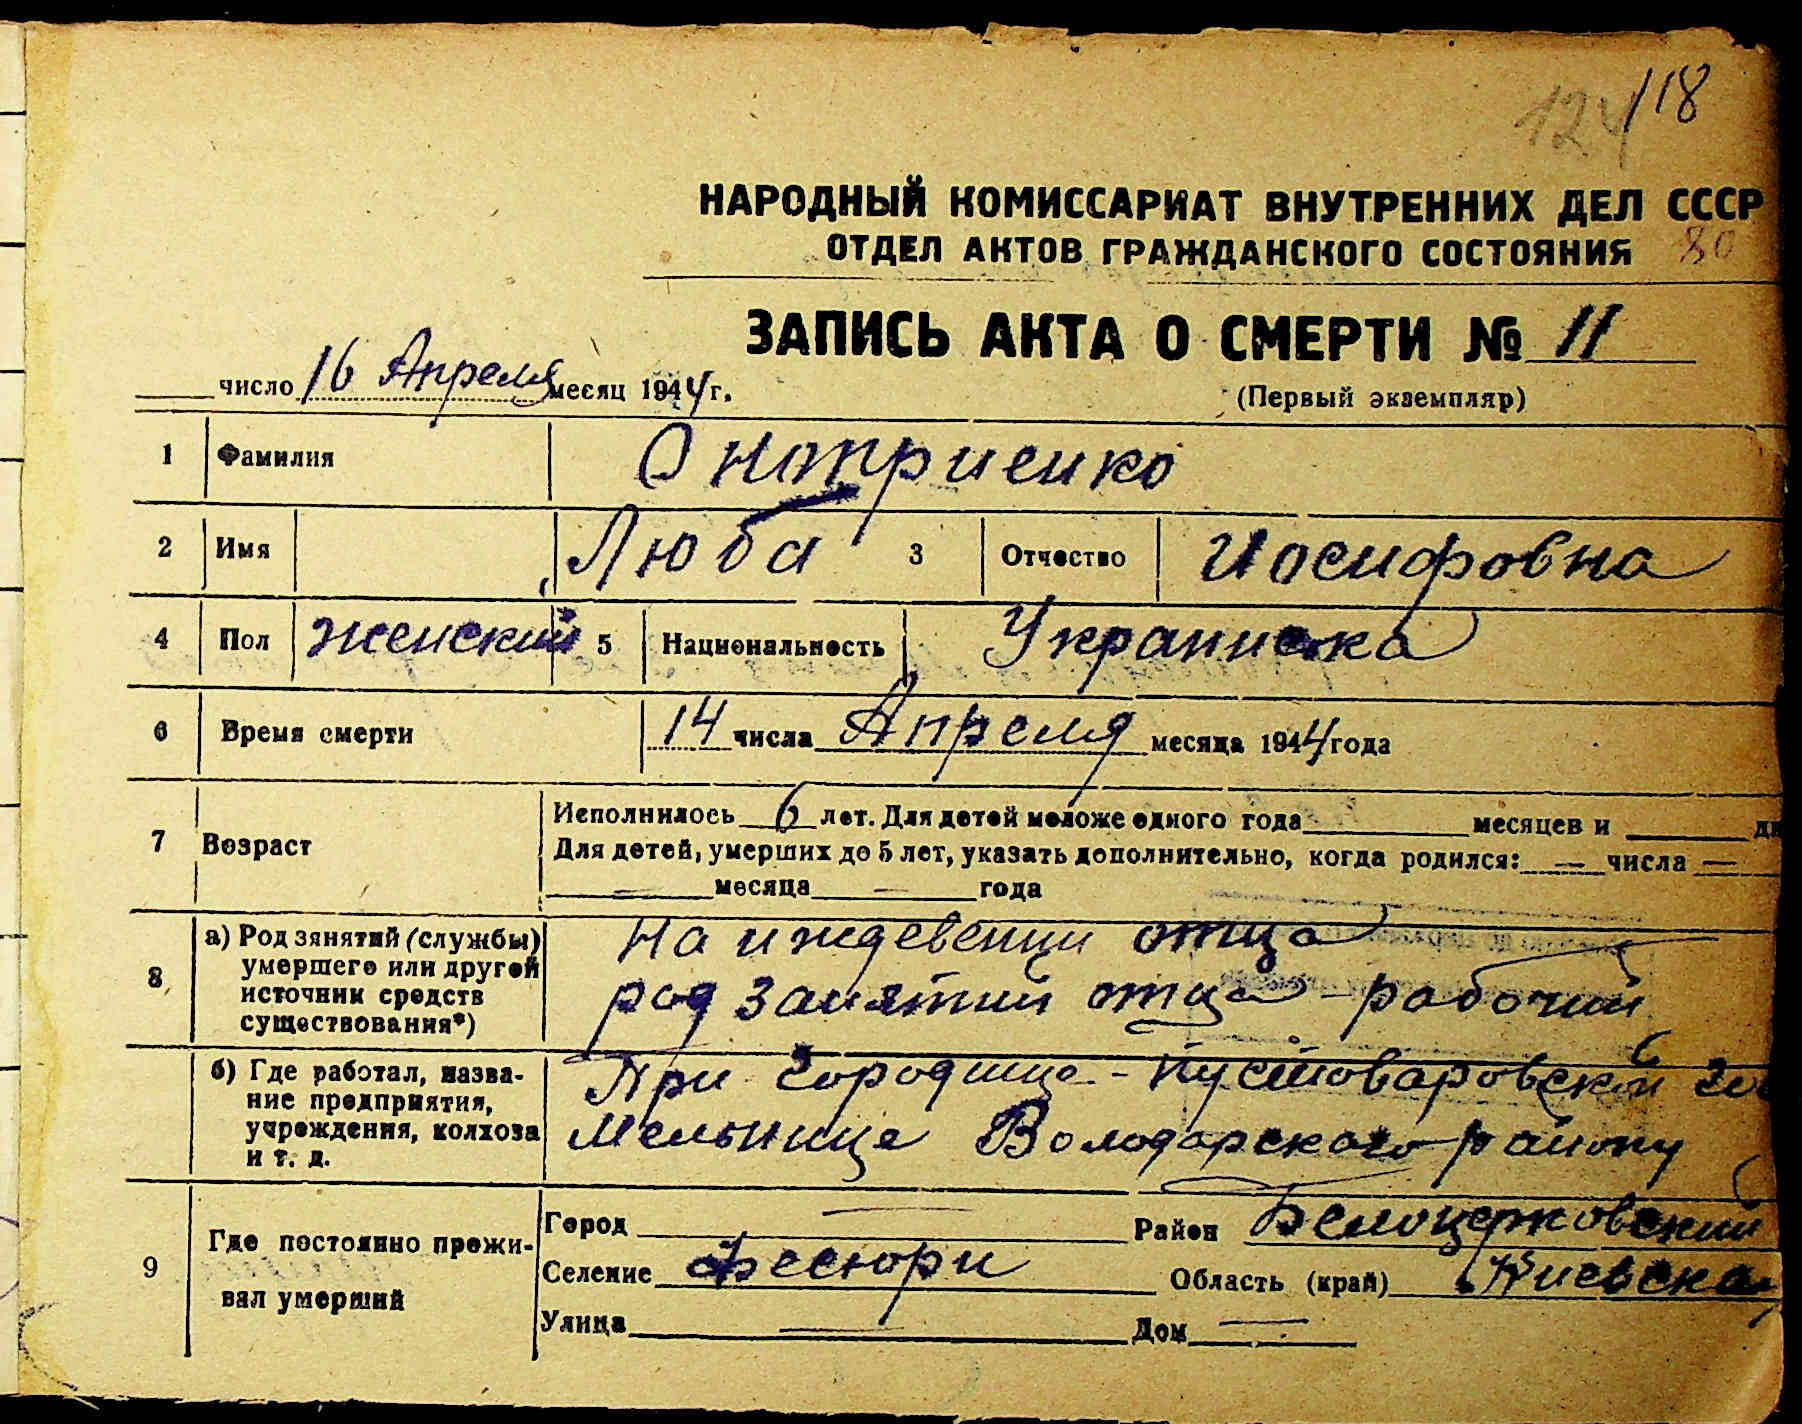 124 118
НАРОДНЫЙ КОМИССАРИАТ ВНУТРЕННИХ ДЕЛ СССР
ОТДЕЛ АКТОВ ГРАЖДАНСКОГО СОСТОЯНИЯ 80
ЗАПИСЬ АКТА О СМЕРТИ № 11
число 16 Апреля месяц 1944 г.
(Первый экземпляр)
1 Фамилия Оноприенко
2 Имя Люба 3 Отчество Иосифовна
4 Пол женский 5 Национальность Украинка
6 Время смерти 14 числа Апреля месяца 1944 года
7 Возраст
Исполнилось 6 лет. Для детей моложе одного года месяцев и
Для детей, умерших до 5 лет, указать дополнительно, когда родился: — числа —
— месяца — года
8 а) Род занятий (службы) умершего или другой источник средств существования*)
На иждевении отца
род занятий отца - рабочий
б) Где работал, название предприятия, учреждения, колхоза и т. д.
При Городище - Пустоваровской
Мельнице Володарского району
9 Где постоянно проживал умерший
Город — Район Белоцерковский
Селение Фесюри Область (край) Киевская
Улица — Дом —